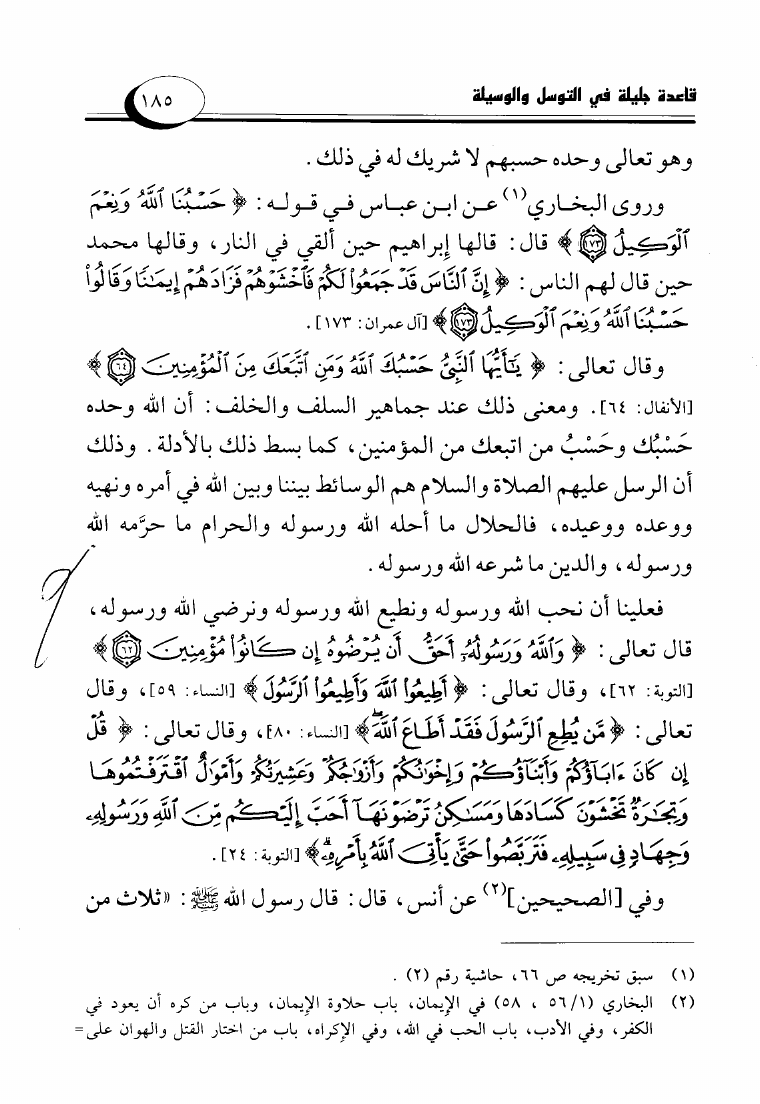 قاعدة جليلة في التوسل والوسيلة
١٨٥
وهو تعالى وحده حسبهم لا شريك له في ذلك .
وروى البخاري(١) عن ابن عباس في قوله : ﴿ حَسْبُنَا ٱللَّهُ وَنِعْمَ
ٱلْوَكِيلُ ١٧٣ ﴾ قال : قالها إبراهيم حين ألقي في النار، وقالها محمد
حين قال لهم الناس : ﴿ إِنَّ ٱلنَّاسَ قَدْ جَمَعُوا۟ لَكُمْ فَٱخْشَوْهُمْ فَزَادَهُمْ إِيمَـٰنًا وَقَالُوا۟
حَسْبُنَا ٱللَّهُ وَنِعْمَ ٱلْوَكِيلُ ١٧٣ ﴾ [آل عمران: ١٧٣] .
وقال تعالى : ﴿ يَـٰٓأَيُّهَا ٱلنَّبِىُّ حَسْبُكَ ٱللَّهُ وَمَنِ ٱتَّبَعَكَ مِنَ ٱلْمُؤْمِنِينَ ٦٤ ﴾
[الأنفال: ٦٤]. ومعنى ذلك عند جماهير السلف والخلف : أن الله وحده
حَسْبُك وحَسْبُ من اتبعك من المؤمنين، كما بسط ذلك بالأدلة . وذلك
أن الرسل عليهم الصلاة والسلام هم الوسائط بيننا وبين الله في أمره ونهيه
ووعده ووعيده، فالحلال ما أحله الله ورسوله والحرام ما حرَّمه الله
ورسوله، والدين ما شرعه الله ورسوله .
فعلينا أن نحب الله ورسوله ونطيع الله ورسوله ونرضي الله ورسوله،
قال تعالى : ﴿ وَٱللَّهُ وَرَسُولُهُۥٓ أَحَقُّ أَن يُرْضُوهُ إِن كَانُوا۟ مُؤْمِنِينَ ٦٢ ﴾
[التوبة: ٦٢]، وقال تعالى : ﴿ أَطِيعُوا۟ ٱللَّهَ وَأَطِيعُوا۟ ٱلرَّسُولَ ﴾ [النساء: ٥٩]، وقال
تعالى : ﴿ مَّن يُطِعِ ٱلرَّسُولَ فَقَدْ أَطَاعَ ٱللَّهَ ۖ ﴾ [النساء: ٨٠]، وقال تعالى : ﴿ قُلْ
إِن كَانَ ءَابَآؤُكُمْ وَأَبْنَآؤُكُمْ وَإِخْوَٰنُكُمْ وَأَزْوَٰجُكُمْ وَعَشِيرَتُكُمْ وَأَمْوَٰلٌ ٱقْتَرَفْتُمُوهَا
وَتِجَـٰرَةٌ تَخْشَوْنَ كَسَادَهَا وَمَسَـٰكِنُ تَرْضَوْنَهَآ أَحَبَّ إِلَيْكُم مِّنَ ٱللَّهِ وَرَسُولِهِۦ
وَجِهَادٍ فِى سَبِيلِهِۦ فَتَرَبَّصُوا۟ حَتَّىٰ يَأْتِىَ ٱللَّهُ بِأَمْرِهِۦ ۗ ﴾ [التوبة: ٢٤] .
وفي [الصحيحين](٢) عن أنس، قال : قال رسول الله ﷺ : «ثلاث من
(١) سبق تخريجه ص ٦٦، حاشية رقم (٢) .
(٢) البخاري (١/ ٥٦ ، ٥٨) في الإيمان، باب حلاوة الإيمان، وباب من كره أن يعود في
الكفر، وفي الأدب، باب الحب في الله، وفي الإكراه، باب من اختار القتل والهوان على=